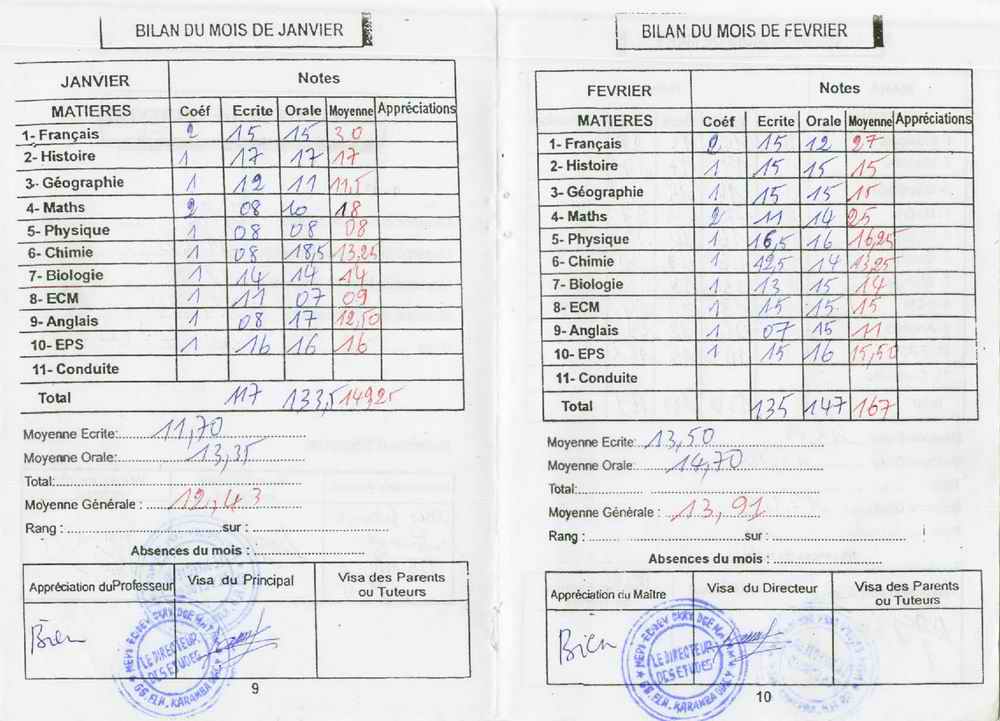 BILAN DU MOIS DE JANVIER
JANVIER Notes
MATIERES Coéf Ecrite Orale Moyenne Appréciations
1- Français 2 15 15 30
2- Histoire 1 17 17 17
3- Géographie 1 12 11 11,5
4- Maths 2 08 10 18
5- Physique 1 08 08 08
6- Chimie 1 08 18,5 13,25
7- Biologie 1 14 14 14
8- ECM 1 11 07 09
9- Anglais 1 08 17 12,50
10- EPS 1 16 16 16
11- Conduite
Total 117 133,5 149,25
Moyenne Ecrite: 11,70
Moyenne Orale: 13,35
Total:
Moyenne Générale : 12,43
Rang : sur :
Absences du mois :
Appréciation du Professeur Visa du Principal Visa des Parents ou Tuteurs
Bien
LE DIRECTEUR
DES ETUDES
9
BILAN DU MOIS DE FEVRIER
FEVRIER Notes
MATIERES Coéf Ecrite Orale Moyenne Appréciations
1- Français 2 15 12 27
2- Histoire 1 15 15 15
3- Géographie 1 15 15 15
4- Maths 2 11 14 25
5- Physique 1 16,5 16 16,25
6- Chimie 1 12,5 14 13,25
7- Biologie 1 13 15 14
8- ECM 1 15 15 15
9- Anglais 1 07 15 11
10- EPS 1 15 16 15,50
11- Conduite
Total 135 147 167
Moyenne Ecrite: 13,50
Moyenne Orale: 14,70
Total:
Moyenne Générale : 13,91
Rang : sur :
Absences du mois :
Appréciation du Maître Visa du Directeur Visa des Parents ou Tuteurs
Bien
LE DIRECTEUR
DES ETUDES
10